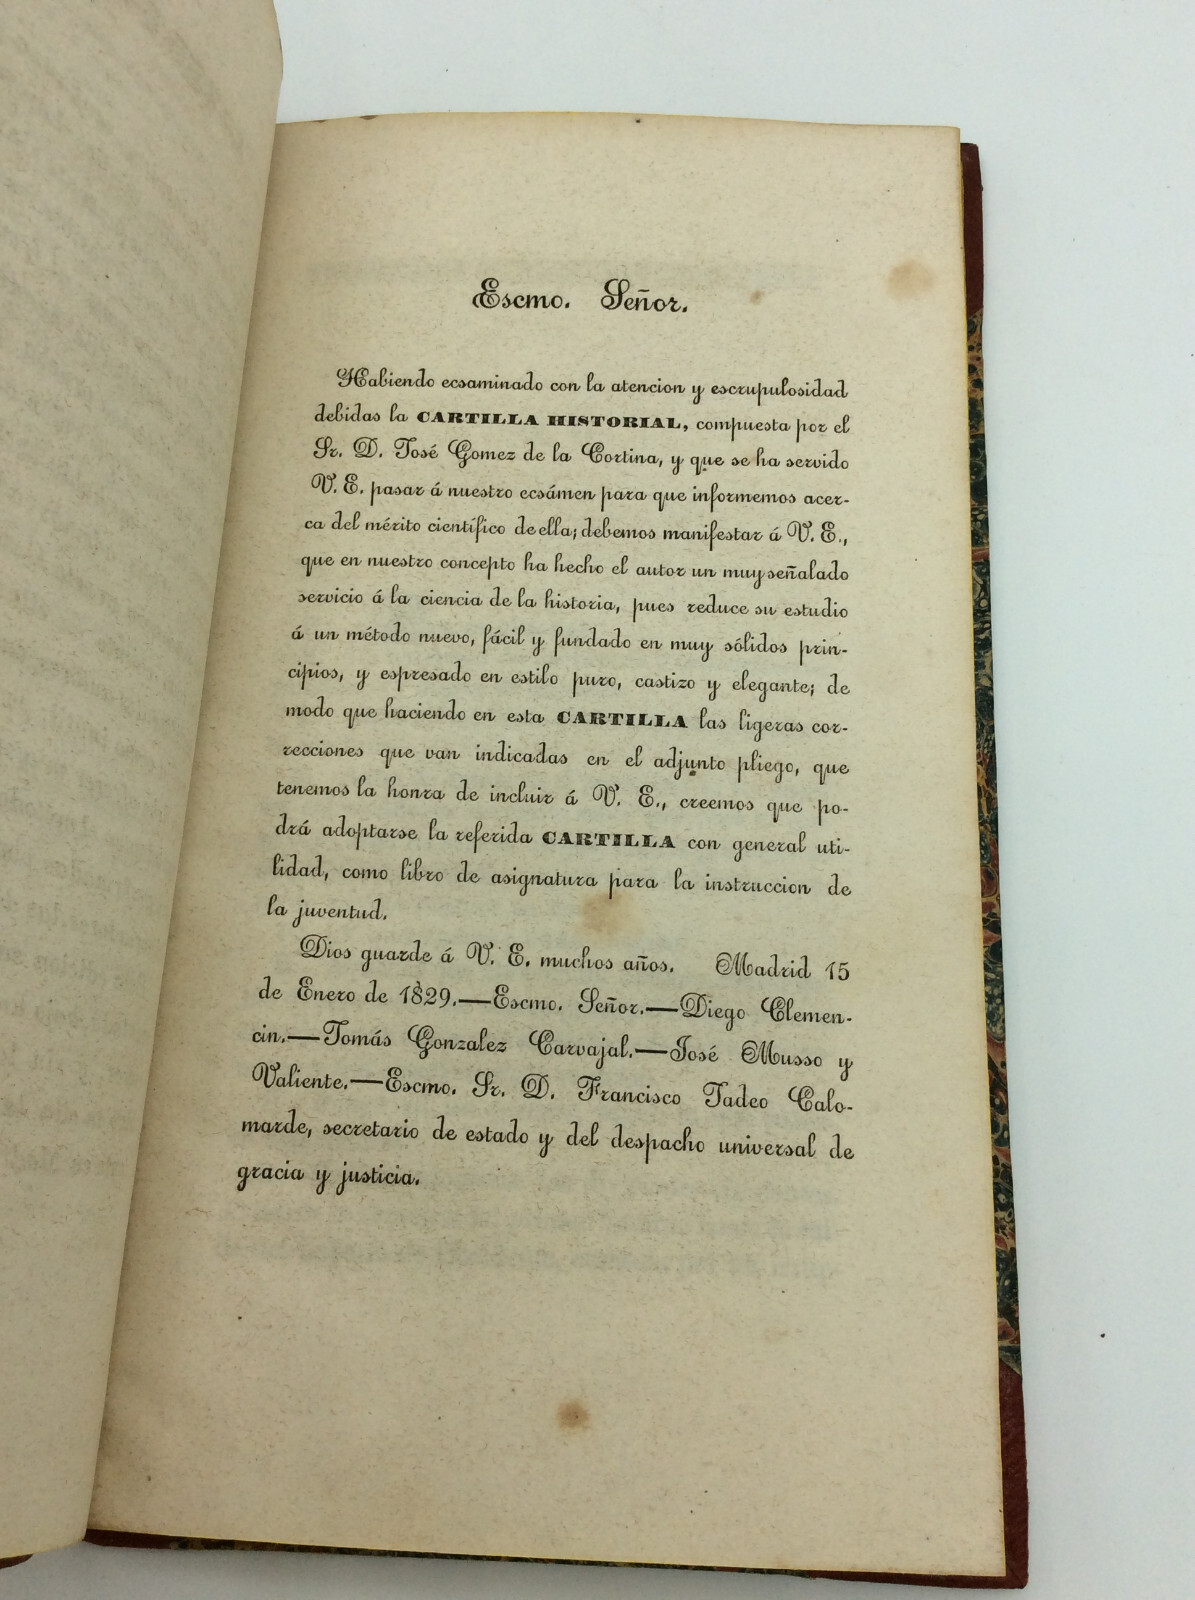 Escmo. Señor.
Habiendo ecsaminado con la atencion y escrupulosidad
debidas la CARTILLA HISTORIAL, compuesta por el
Sr. D. José Gomez de la Cortina, y que se ha servido
V. E. pasar á nuestro ecsámen para que informemos acer-
ca del mérito científico de ella; debemos manifestar á V. E.,
que en nuestro concepto ha hecho el autor un muy señalado
servicio á la ciencia de la historia, pues reduce su estudio
á un método nuevo, fácil y fundado en muy sólidos prin-
cipios, y espresado en estilo puro, castizo y elegante; de
modo que haciendo en esta CARTILLA las ligeras cor-
recciones que van indicadas en el adjunto pliego, que
tenemos la honra de incluir á V. E., creemos que po-
drá adoptarse la referida CARTILLA con general uti-
lidad, como libro de asignatura para la instruccion de
la juventud.
Dios guarde á V. E. muchos años. Madrid 15
de Enero de 1829.—Escmo. Señor.—Diego Clemen-
cin.—Tomás Gonzalez Carvajal.—José Musso y
Valiente.—Escmo. Sr. D. Francisco Tadeo Calo-
marde, secretario de estado y del despacho universal de
gracia y justicia.